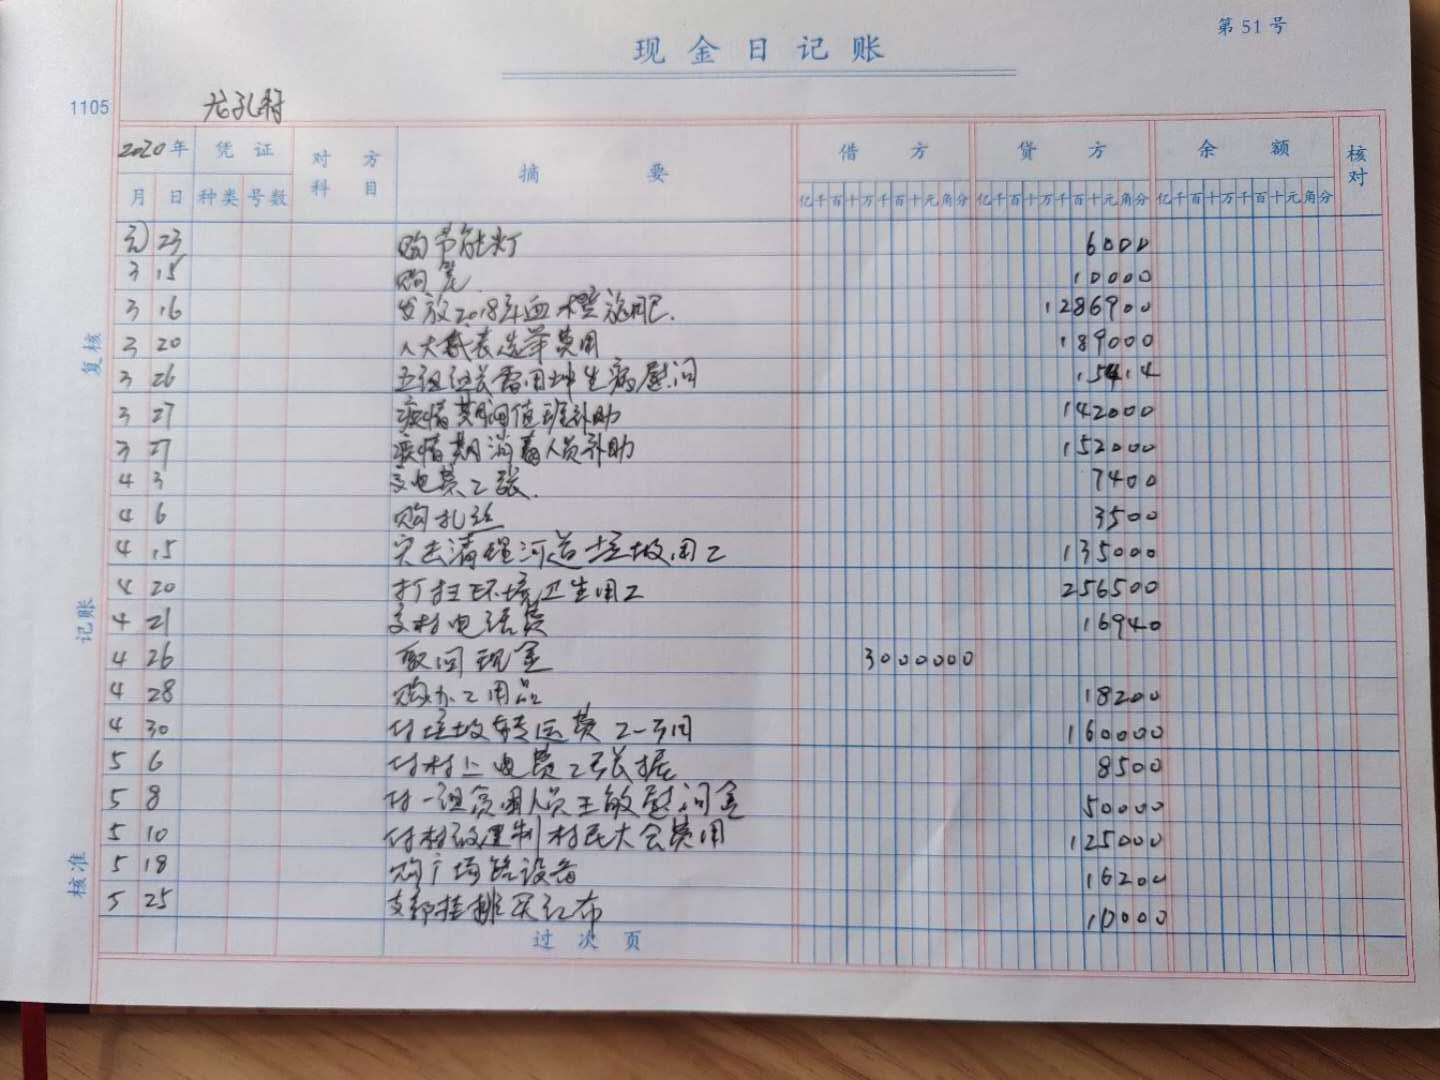 第 51 号
现 金 日 记 账
1105
龙孔村
2020年 凭 证 对 方 科 目 摘 要 借 方 贷 方 余 额 核对
月 日 种类 号数 亿千百十万千百十元角分 亿千百十万千百十元角分 亿千百十万千百十元角分
元 23 购节能灯 6000
3 15 购 10000
3 16 发放2018年血橙施肥. 1286900
3 20 人大代表选举费用 189000
3 26 五组 生病慰问
3 27 疫情期间值班补助 142000
3 27 疫情期消毒人员补助 152000
4 3 交电费2张. 7400
4 6 购扎丝 3500
4 15 突击清理河道垃圾用工 135000
4 20 打扫环境卫生用工 256500
4 21 交村电话费 16940
4 26 取回现金 3000000
4 28 购办公用品 18200
4 30 付垃圾转运费 160000
5 6 付村上电费2张据 8500
5 8 付一组贫困人员王敏慰问金 50000
5 10 付村改建制村民大会费用 125000
5 18 购广场 设备 16200
5 25 支部挂牌买红布 10000
过 次 页
复核
记账
核准